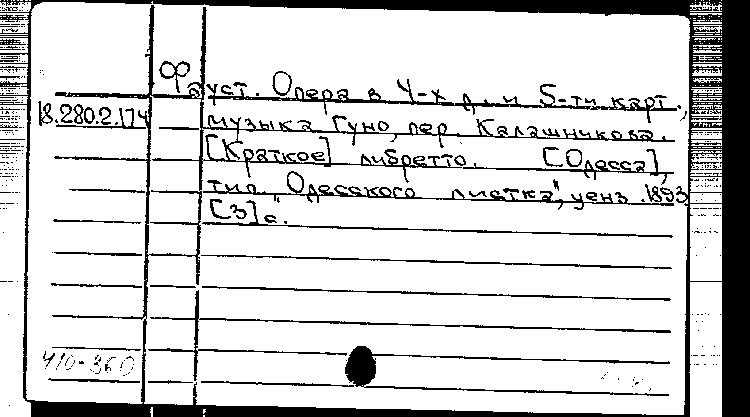 Фауст. Опера в 4-х д. и 5-ти карт.,
18.280.2.174
музыка Гуно, пер. Калашникова.
[Краткое] либретто. [Одесса],
тип. "Одесского листка", ценз. 1893
[3] с.
410-360